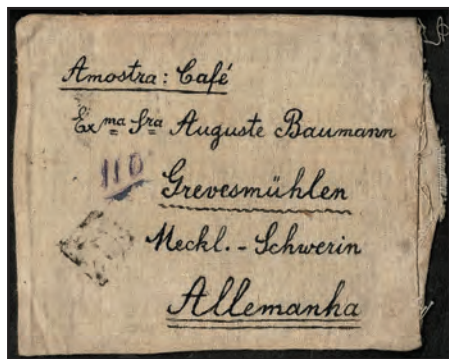 Amostra: Café
Exma Sra Auguste Baumann
110
Grevesmühlen
Meckl.-Schwerin
Allemanha